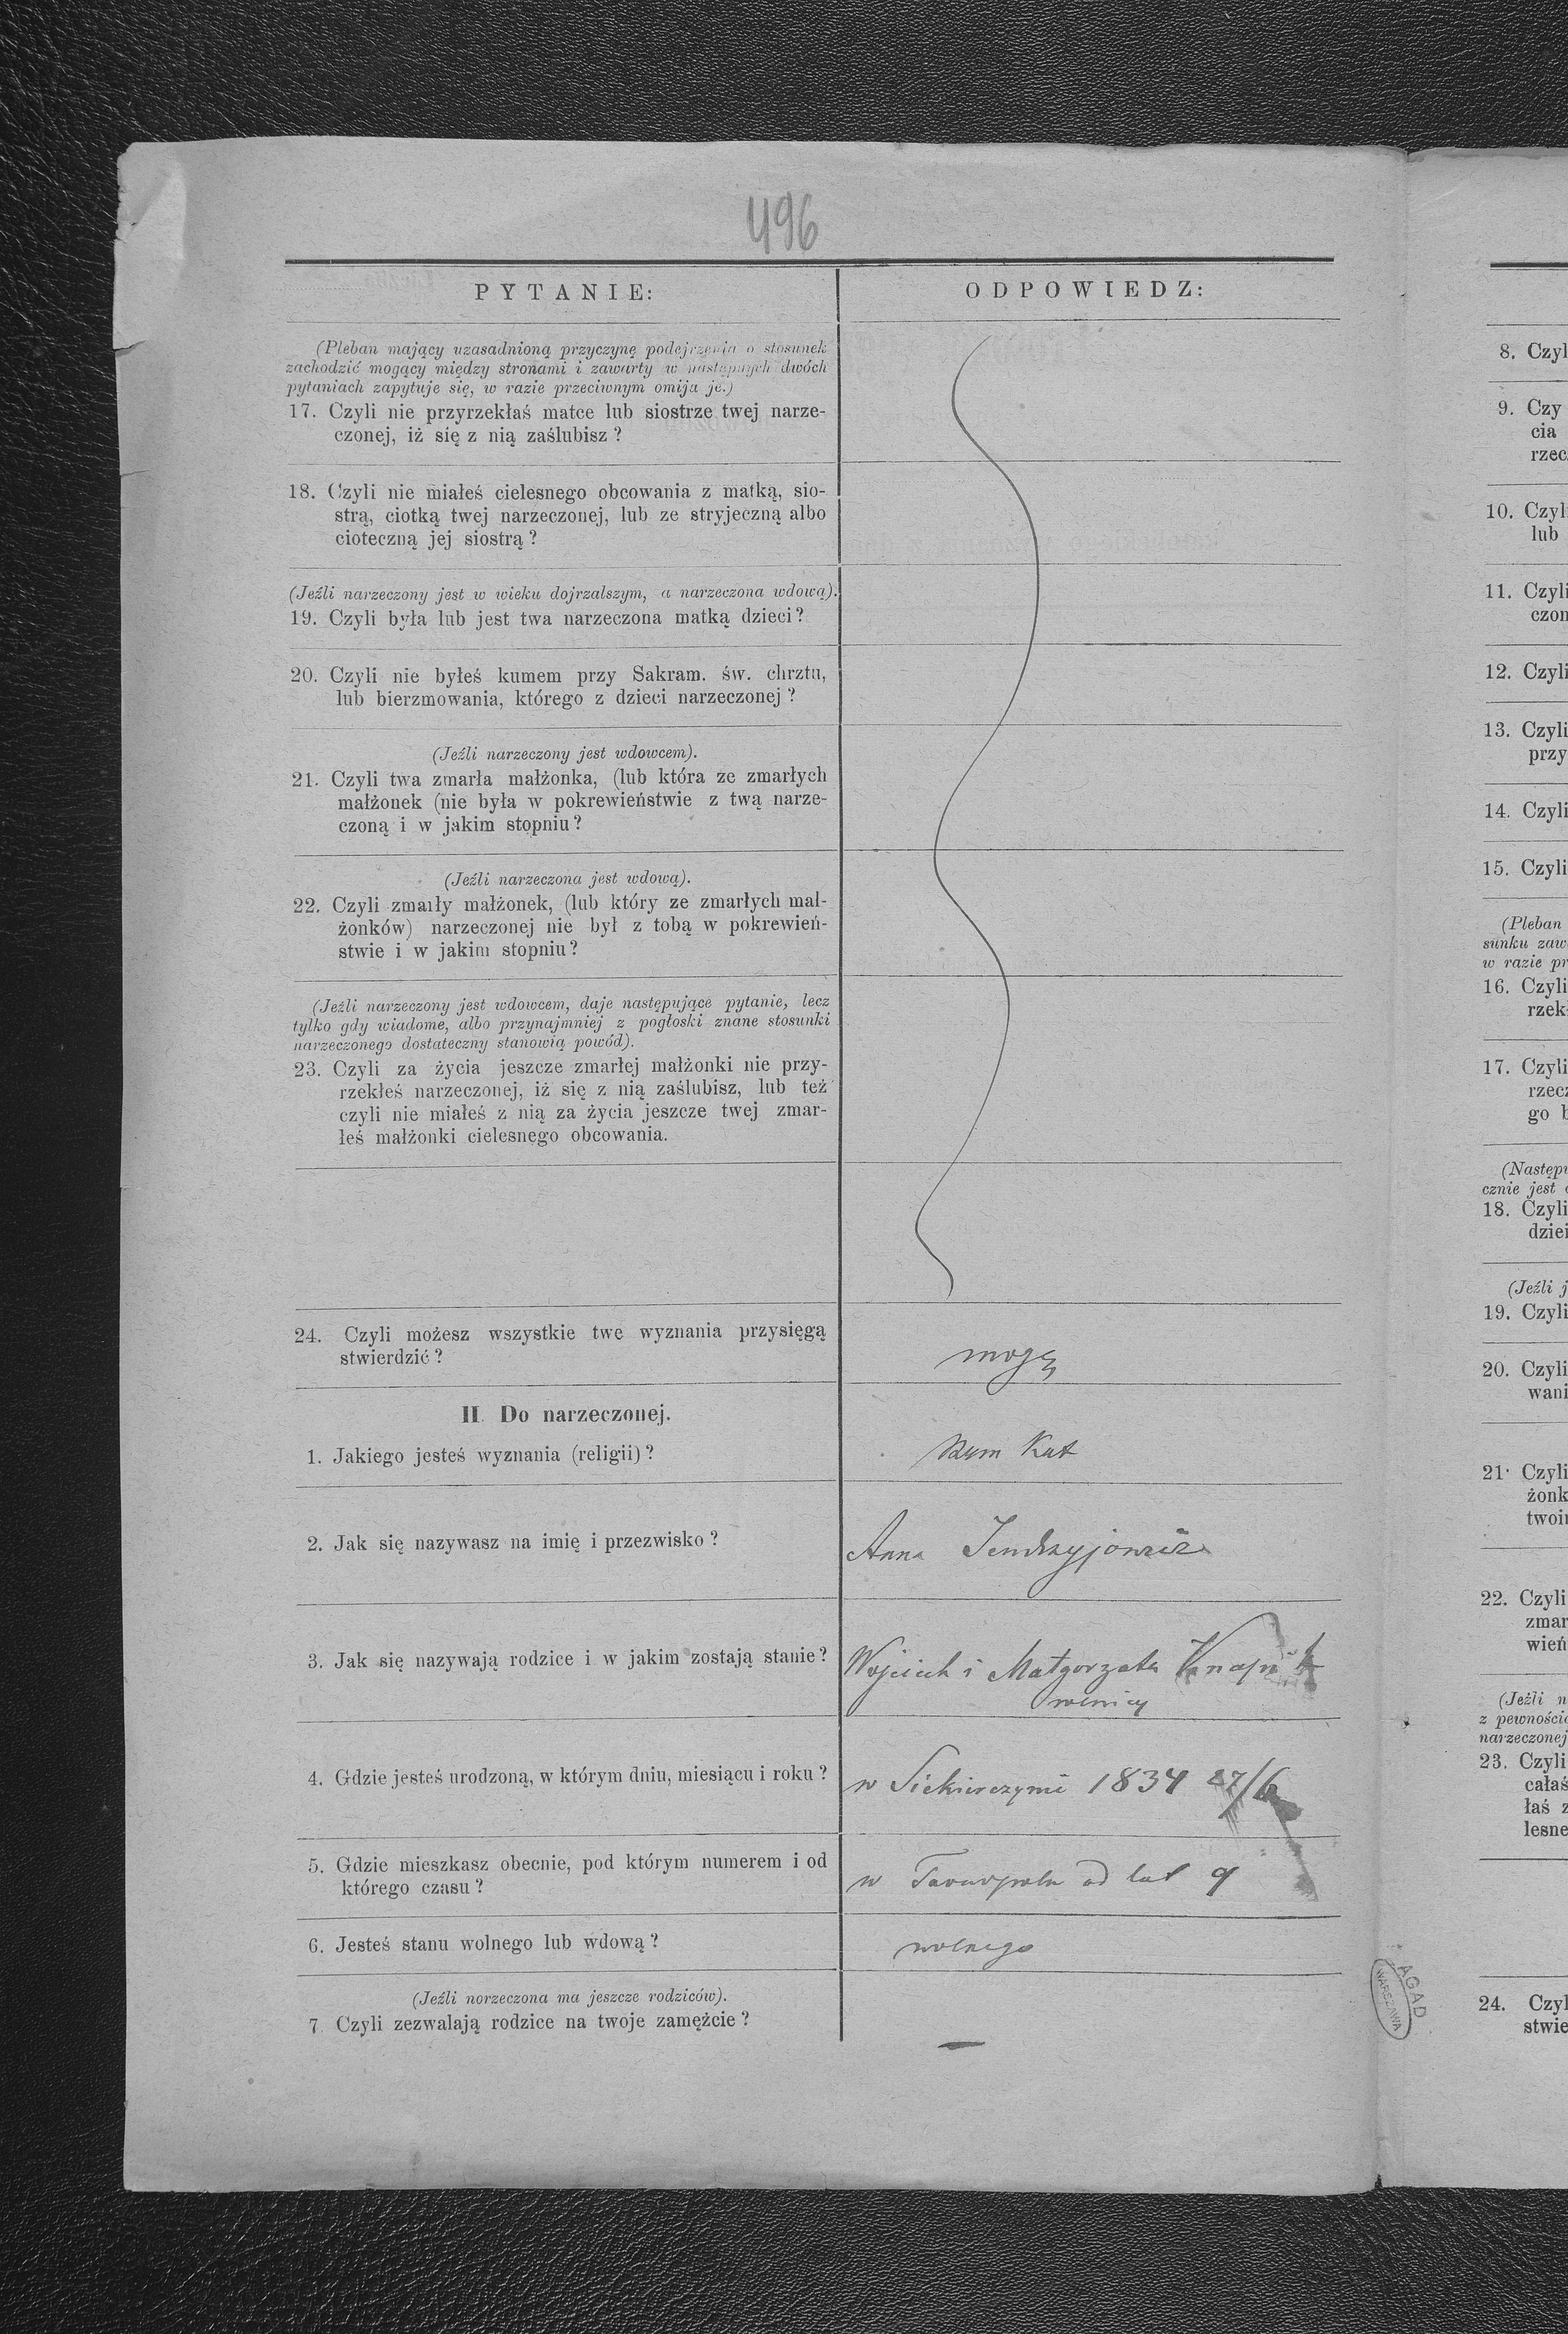 496
PYTANIE:
ODPOWIEDZ:
(Pleban mający uzasadnioną przyczynę podejrzenia o stosunek
zachodzić mogący między stronami i zawarty w następnych dwóch
pytaniach zapytuje się, w razie przeciwnym omija je.)
17. Czyli nie przyrzekłaś matce lub siostrze twej narze-
czonej, iż się z nią zaślubisz?
18. Czyli nie miałeś cielesnego obcowania z matką, sio-
strą, ciotką twej narzeczonej, lub ze stryjeczną albo
cioteczną jej siostrą?
(Jeźli narzeczony jest w wieku dojrzalszym, a narzeczona wdową).
19. Czyli była lub jest twa narzeczona matką dzieci?
20. Czyli nie byłeś kumem przy Sakram. św. chrztu,
lub bierzmowania, którego z dzieci narzeczonej?
(Jeźli narzeczony jest wdowcem).
21. Czyli twa zmarła małżonka, (lub która ze zmarłych
małżonek (nie była w pokrewieństwie z twą narze-
czoną i w jakim stopniu?
(Jeźli narzeczona jest wdową).
22. Czyli zmarły małżonek, (lub który ze zmarłych mał-
żonków) narzeczonej nie był z tobą w pokrewień-
stwie i w jakim stopniu?
(Jeźli narzeczony jest wdowcem, daje następujące pytanie, lecz
tylko gdy wiadome, albo przynajmniej z pogłoski znane stosunki
narzeczonego dostateczny stanowią powód).
23. Czyli za życia jeszcze zmarłej małżonki nie przy-
rzekłeś narzeczonej, iż się z nią zaślubisz, lub też
czyli nie miałeś z nią za życia jeszcze twej zmar-
łeś małżonki cielesnego obcowania.
24. Czyli możesz wszystkie twe wyznania przysięgą
stwierdzić?
mogę
II. Do narzeczonej.
1. Jakiego jesteś wyznania (religii)?
Rzym Kat
2. Jak się nazywasz na imię i przezwisko?
Anna
3. Jak się nazywają rodzice i w jakim zostają stanie?
Wojciech i Małgorzata
rolnicy
4. Gdzie jesteś urodzoną, w którym dniu, miesiącu i roku?
w 1834 27/6
5. Gdzie mieszkasz obecnie, pod którym numerem i od
którego czasu?
w Tarnopolu od lat 9
6. Jesteś stanu wolnego lub wdową?
wolnego
(Jeźli norzeczona ma jeszcze rodziców).
7 Czyli zezwalają rodzice na twoje zamężcie?
AGAD
WARSZAWA
8. Czyl
9. Czy
cia
rzec
10. Czyl
lub
11. Czyli
czon
12. Czyli
13. Czyli
przy
14. Czyli
15. Czyli
(Pleban
sunku zaw
w razie pr
16. Czyli
rzek
17. Czyli
rzecz
go b
(Następ
cznie jest
18. Czyli
dzie
(Jeźli j
19. Czyli
20. Czyli
wani
21. Czyli
żonk
twoi
22. Czyli
zmar
wień
(Jeźli n
z pewności
narzeczonej
23. Czyli
całaś
łaś z
lesne
24. Czyl
stwie